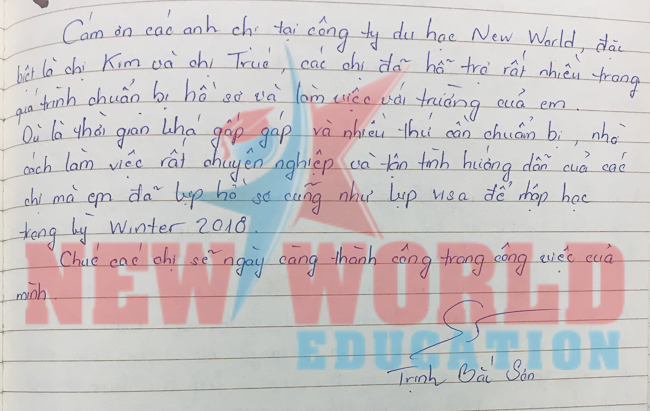 Cám ơn các anh chị tại công ty du học New World, đặc
biệt là chị Kim và chị Trúc, các chị đã hỗ trợ rất nhiều trong
quá trình chuẩn bị hồ sơ và làm việc với trường của em.
Dù là thời gian khá gấp gáp và nhiều thứ cần chuẩn bị, nhờ
cách làm việc rất chuyên nghiệp và tận tình hướng dẫn của các
chị mà em đã kịp hồ sơ cũng như kịp visa để nhập học
trong kỳ Winter 2018.
Chúc các chị sẽ ngày càng thành công trong công việc của
mình.
NEW WORLD
EDUCATION
Trịnh Bắc Sơn